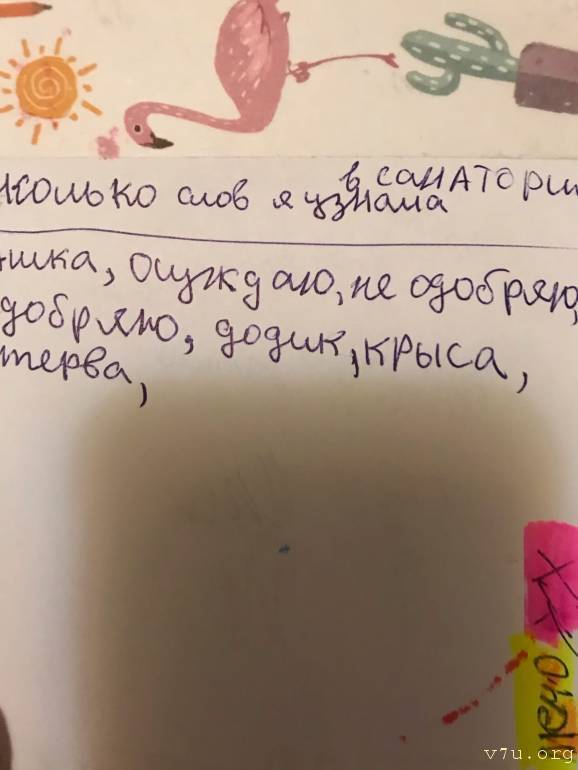 сколько слов я узнала в санатории
ашка, осуждаю, не одобряю,
одобряю, додик, крыса,
стерва,
v7u.org